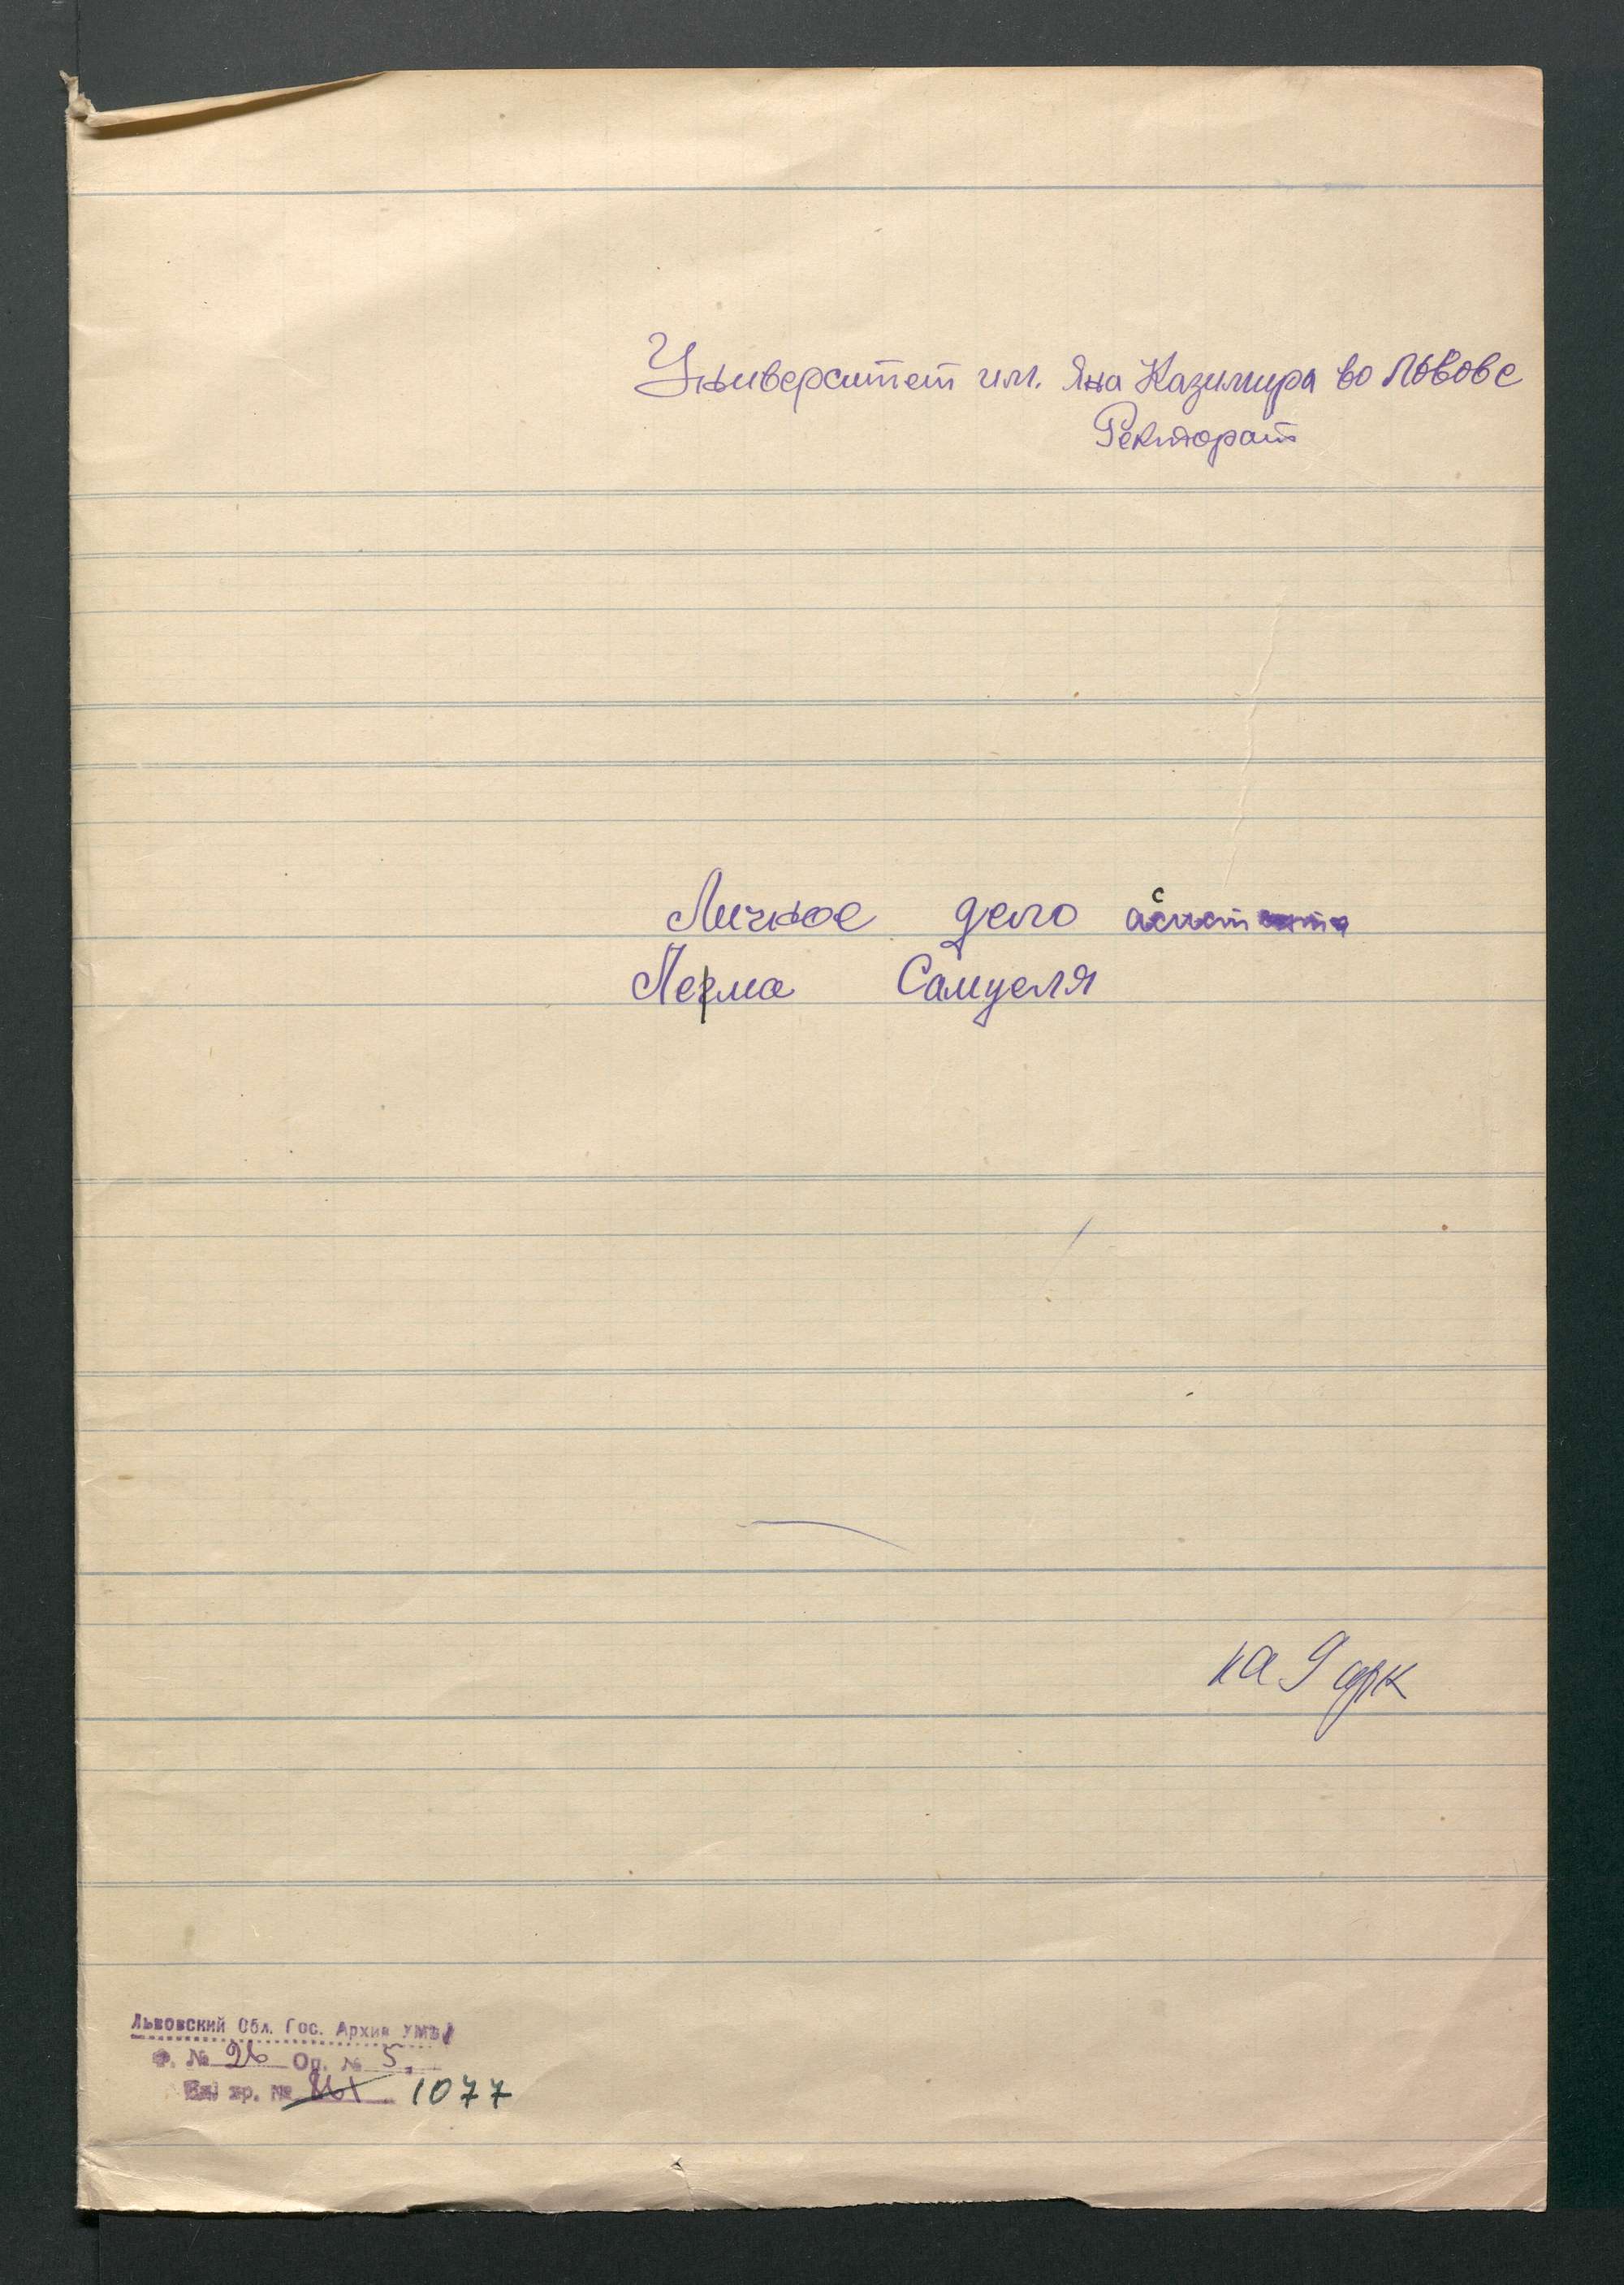 Университет им. Яна Казимира во Львове
Ректорат
Личное дело ассистента
Лерма Самуеля
на 9 арк
Львовский Обл. Гос. Архив УМВД
Ф. № 26 Оп. № 5
Ед. хр. № 1077